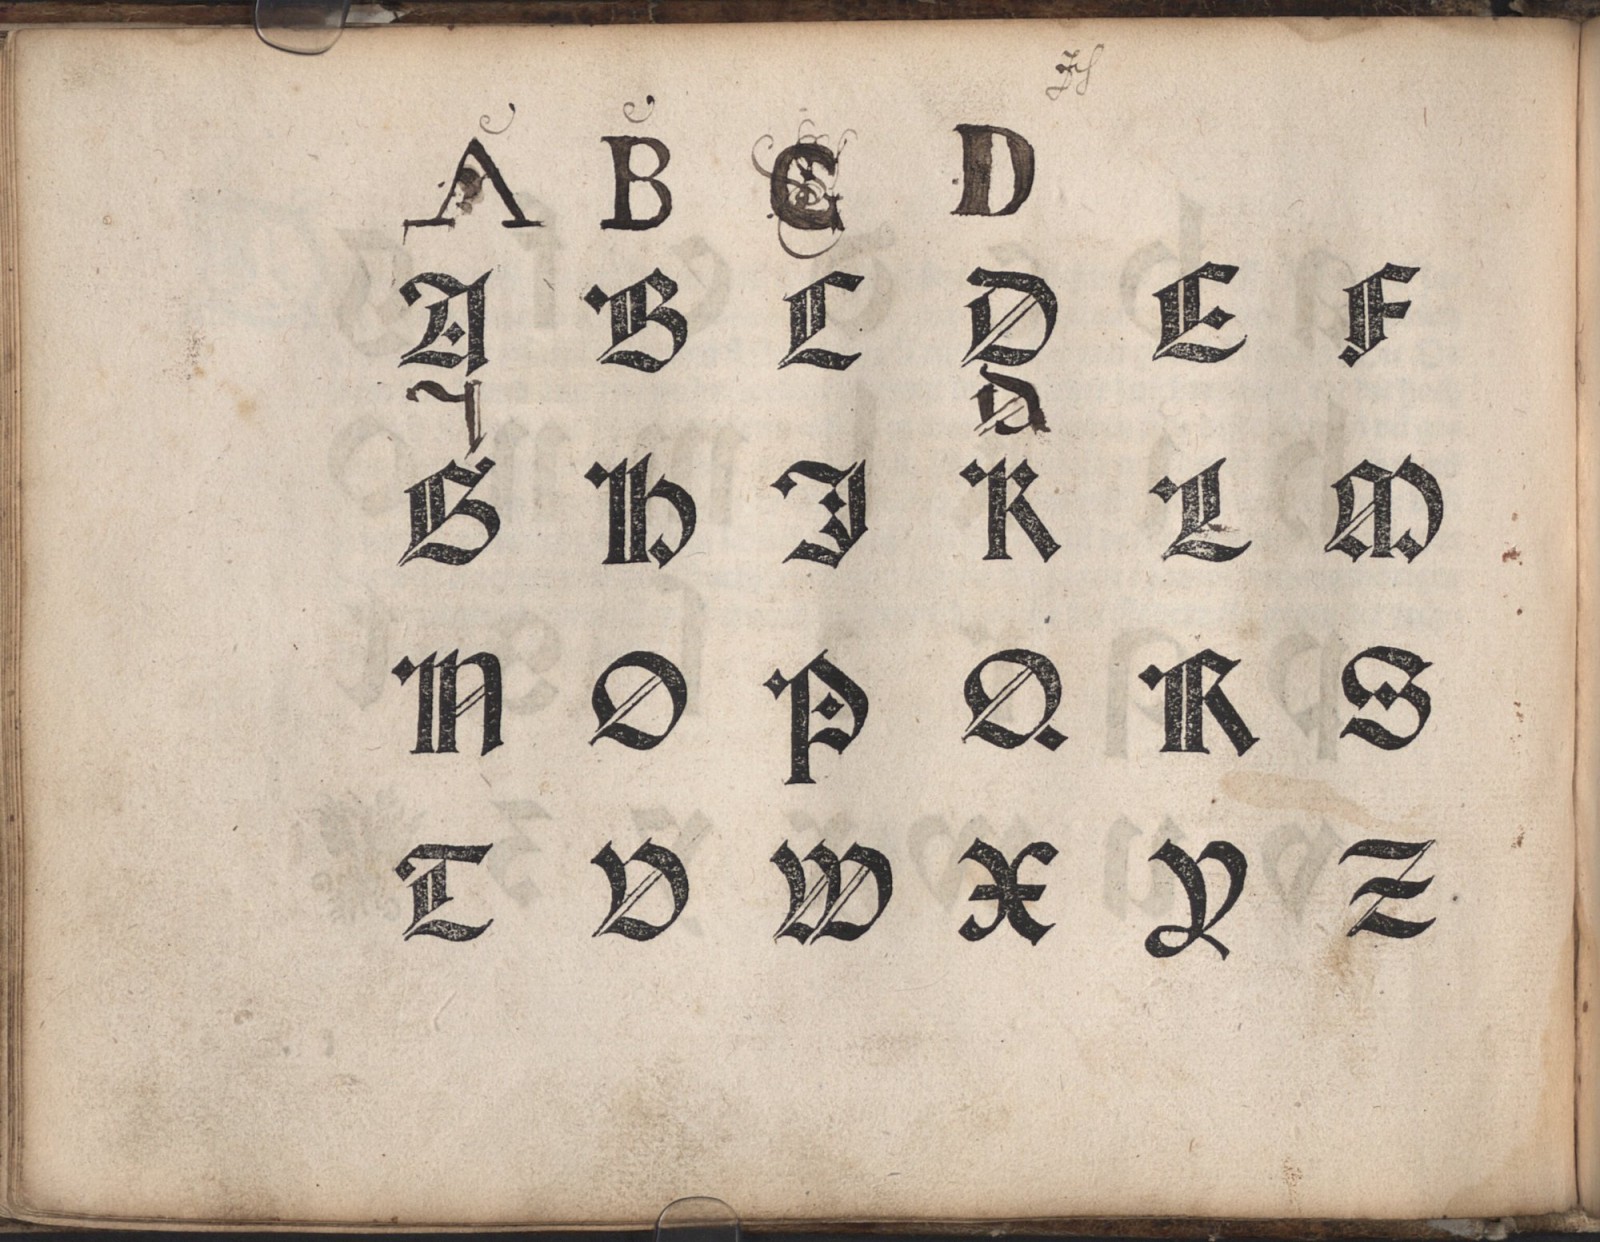 A B C D
A B C D E F
D
G H I K L M
N O P Q R S
T V W X Y Z